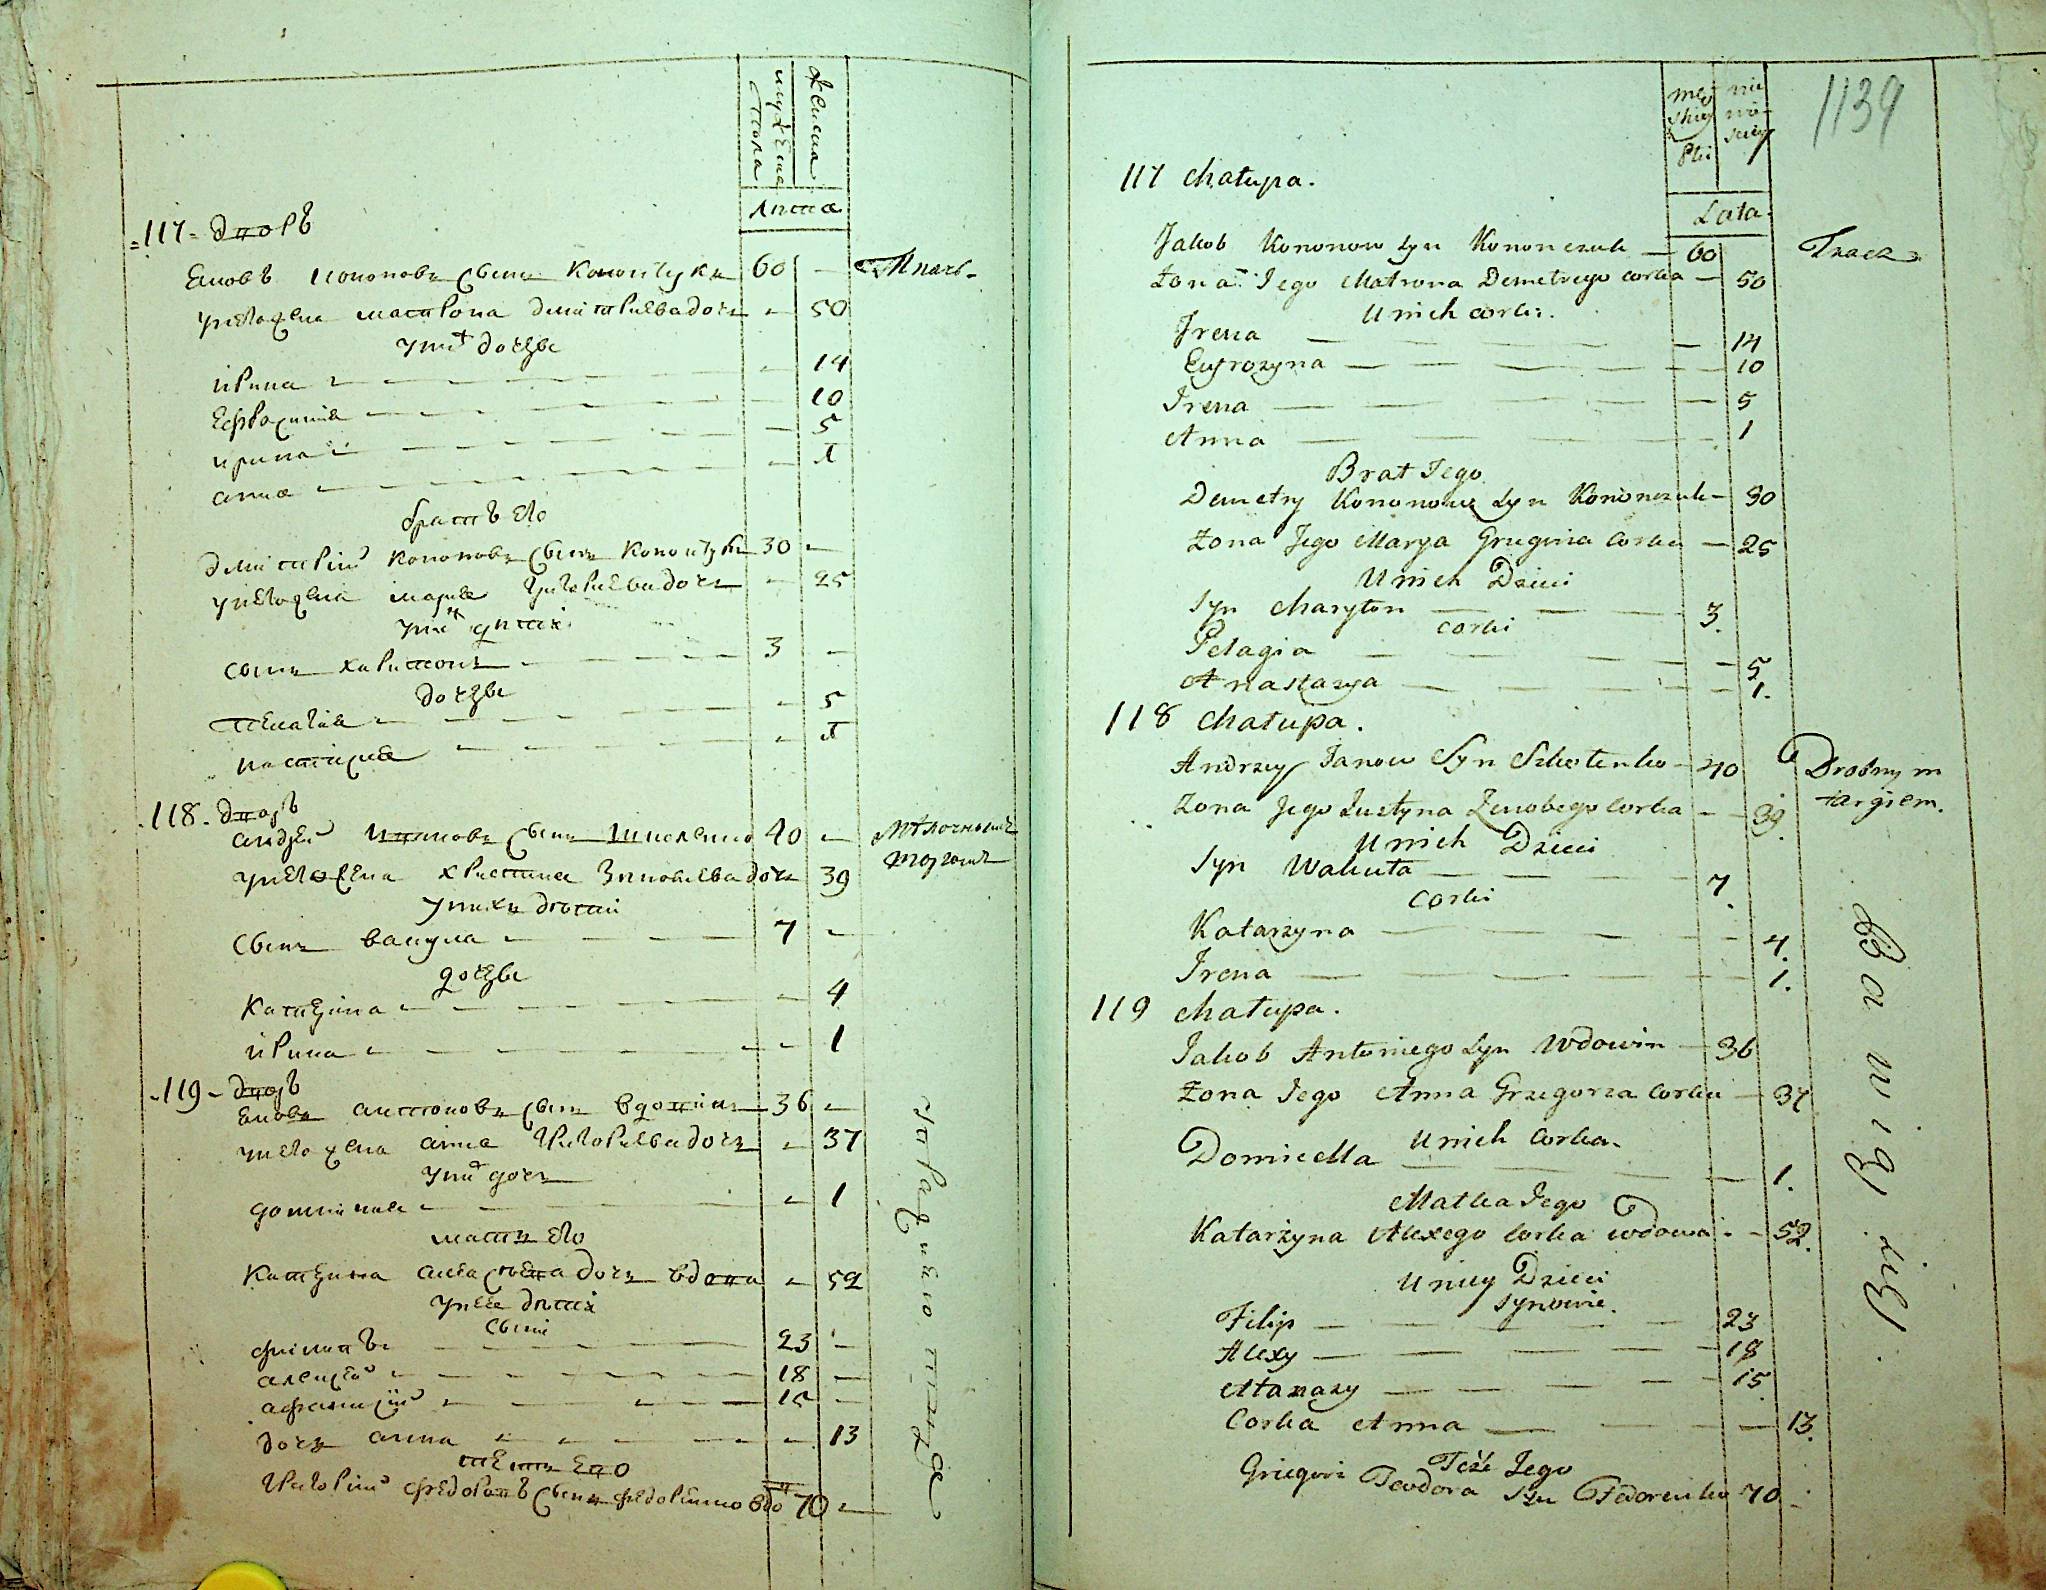 мужеска
пола
женска
лита
117 дворъ
Яковъ Кононовъ сынъ Конончукъ 60 — Ткачъ
у него жена Матрона Дмитриева дочъ — 50
у них дочери
Ирина — 14
Ефросиния — 10
Ирина — 5
Анна — 1
братъ его
Дмитрий Кононовъ сынъ Конончукъ 30 —
у него жена Мария Григориева дочъ — 25
у них дити
сынъ Харитонъ 3 —
дочери
Пелагия — 5
Настасия — 1
118 дворъ
Андрей Ивановъ сынъ 40 — мѣлочнымъ
торгомъ
у него жена Христина Зиновиева дочъ 39
у нихъ дѣти
сынъ Вакула 7 —
дочери
Катерина — 4
Ирина — 1
119 дворъ
Яковъ Антоновъ сынъ Вдовин 36 —
у него жена Анна Григориева дочъ — 37
у них дочъ
— 1
мать его
Катерина Алексѣева дочъ вдова — 52
у нее дѣти
сыни
Филипъ 23 —
Алексѣй 18 —
Афанасий 15 —
дочъ Анна — 13
тесть его
Григорий Федоровъ сынъ Федоренко вдо 70 —
1139
męskiej
Płci
niewieściey
Lata
117 Chałupa.
Jakob Kononow Syn Kononczuk — 60 Tkacz
Żona Jego Matrona Demetrego corka — 50
U nich corki.
Irena — 14
Eufrozyna — 10
Irena — 5
Anna — 1
Brat Jego
Demetry Kononow Syn Kononczuk — 30
Żona Jego Marya Grzegorza Corka — 25
U nich Dzieci
Syn Charyton — 3.
Corki
Pelagia — 5
Anastazya — 1.
118 Chałupa.
Andrzey Janow Syn — 40 Drobnym
targiem.
Żona Jego Justyna Zenobego Corka — 39.
U nich Dzieci
Syn Wakuła — 7.
Corki
Katarzyna — 4.
Irena — 1.
119 Chałupa.
Jakob Antoniego Syn Wdowin — 36
Żona Jego Anna Grzegorza Corka — 37
U nich Corka.
Domicella — 1.
Matka Jego
Katarzyna Alexego Corka wdowa — 52.
U niey Dzieci
Synowie.
Filip — 23
Alexy — 18
Atanazy — 15
Corka Anna — 13.
Teść Jego
Grzegorz Teodora Syn Fedorenko 70 —